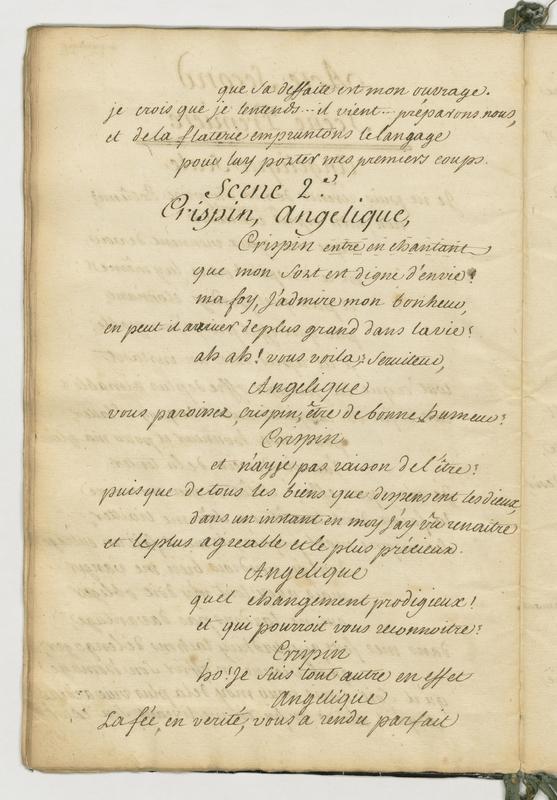 que sa deffaite est mon ouvrage.
je crois que je l'entends... il vient... préparons nous,
et de la flaterie empruntons le langage
pour luy porter mes premiers coups.
Scene 2.e
Crispin, Angelique,
Crispin entre en chantant
que mon sort est digne d'envie!
ma foy, j'admire mon bonheur,
en peut il arriver de plus grand dans la vie?
ah ah! vous voila? serviteur,
Angelique
vous paroissez, crispin, être de bonne humeur?
Crispin
et n'ay je pas raison de l'être?
puisque de tous les biens que dispensent les dieux,
dans un instant en moy j'ay vû renaitre
et le plus agreable et le plus précieux.
Angelique
quel changement prodigieux!
et qui pourroit vous reconnoitre?
Crispin
ho! je suis tout autre en effet
Angelique
La fée, en verité, vous a rendu parfait